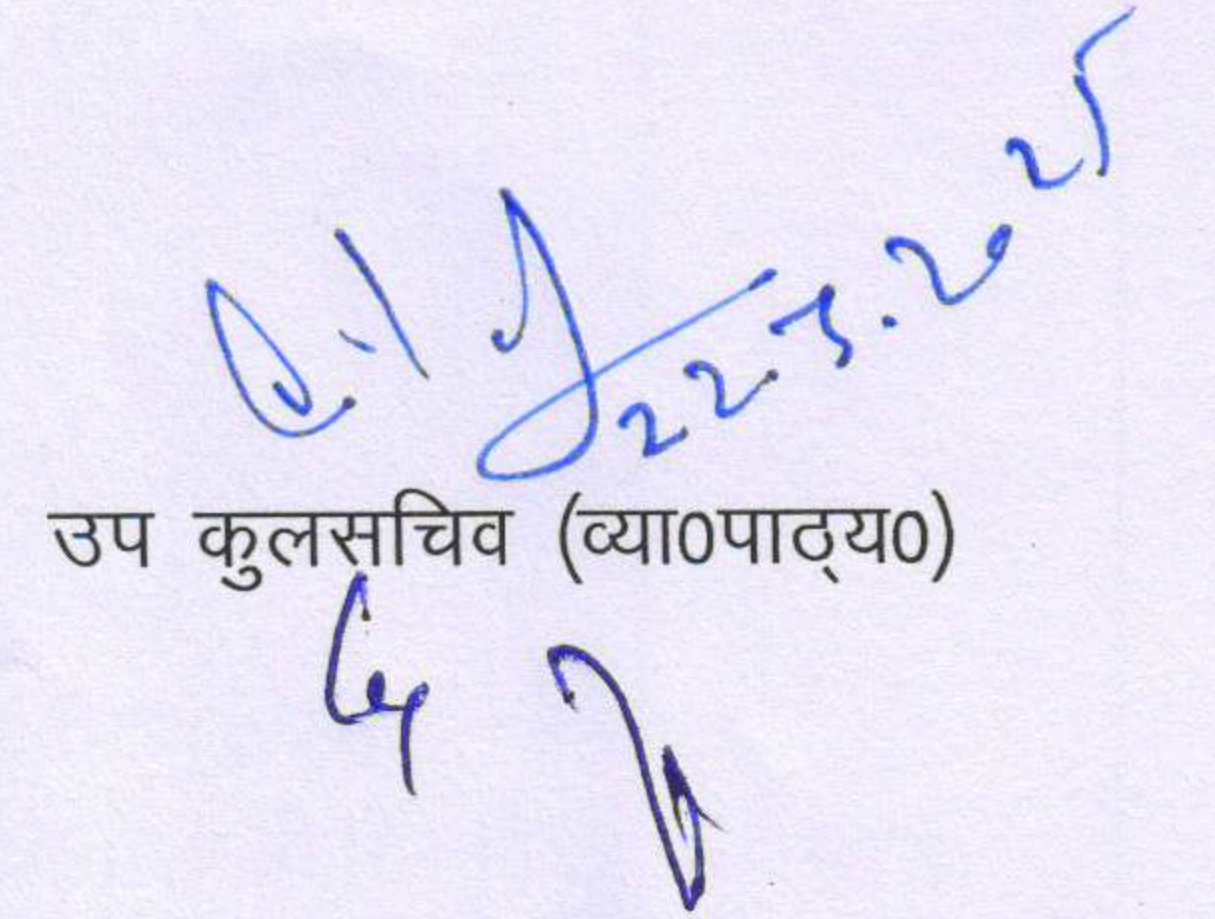 22.3.2025
उप कुलसचिव (व्या0पाठ्य0)